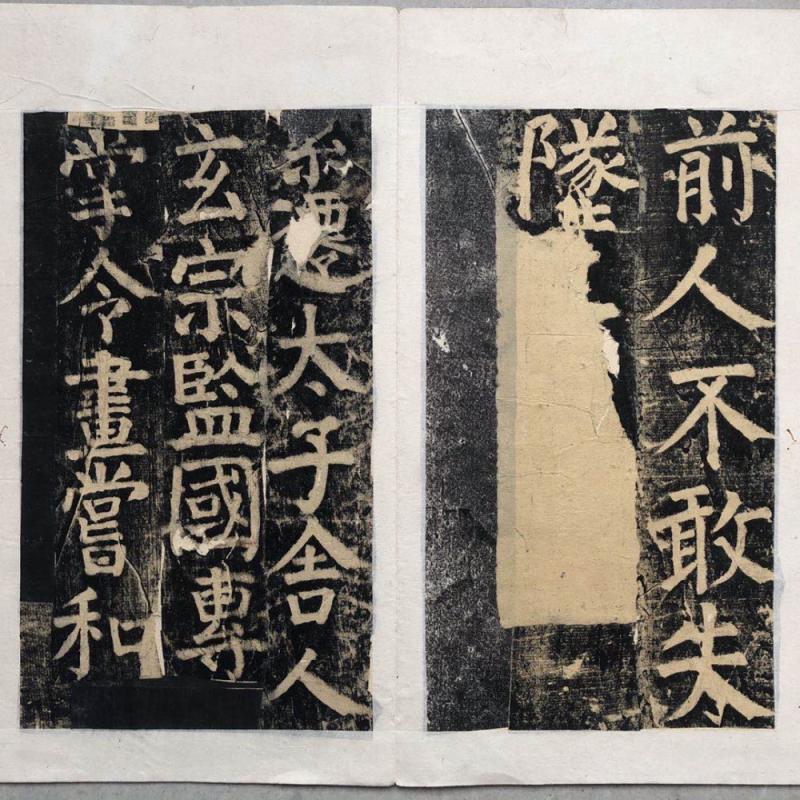 前人不敢失
墜
累遷太子舍人
玄宗監國專
掌令畫嘗和